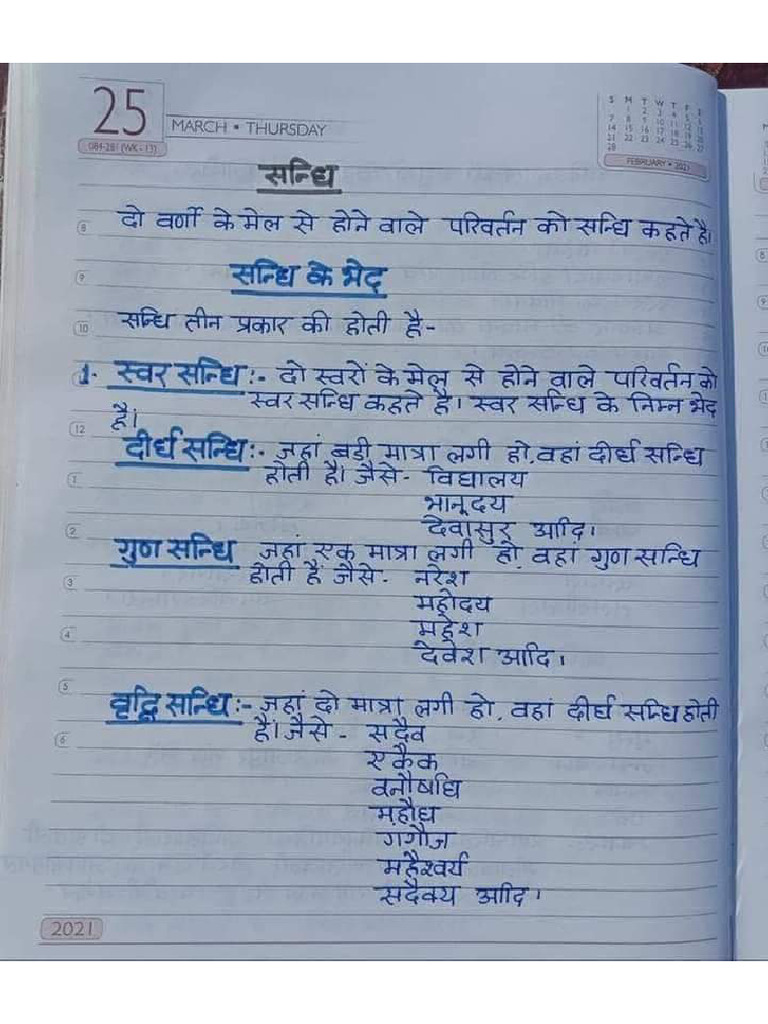 25
MARCH • THURSDAY
084-281 (WK - 13)
S M T W T F S
1 2 3 4 5 6
7 8 9 10 11 12 13
14 15 16 17 18 19 20
21 22 23 24 25 26 27
28
FEBRUARY • 2021
सन्धि
8 दो वर्णो के मेल से होने वाले परिवर्तन को सन्धि कहते है।
9 सन्धि के भेद
10 सन्धि तीन प्रकार की होती है-
1. स्वर सन्धि :- दो स्वरों के मेल से होने वाले परिवर्तन को
स्वर सन्धि कहते है। स्वर सन्धि के निम्न भेद
है।
12
दीर्घ सन्धि :- जहां बडी मात्रा लगी हो, वहां दीर्घ सन्धि
1 होती है। जैसे- विद्यालय
भानूदय
2 देवासुर आदि।
गुण सन्धि जहां एक मात्रा लगी हो, वहां गुण सन्धि
3 होती है जैसे- नरेश
महोदय
4 महेश
देवेश आदि।
5
वृद्धि सन्धि :- जहां दो मात्रा लगी हो, वहां दीर्घ सन्धि होती
6 है। जैसे - सदैव
एकैक
वनौषधि
महौध
गगौज
महैश्वर्य
सदैक्य आदि।
2021